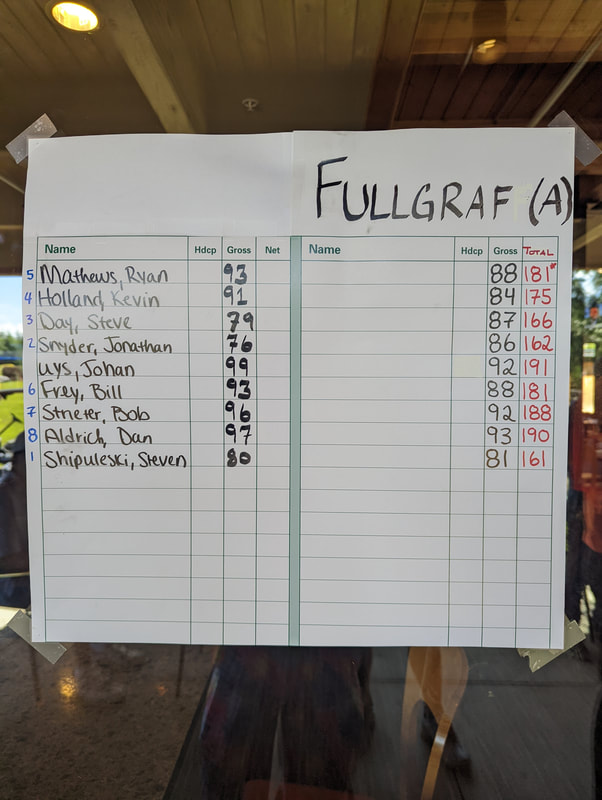 FULLGRAF (A)
Name Hdcp Gross Net Name Hdcp Gross TOTAL
5 Mathews, Ryan 93 88 181*
4 Holland, Kevin 91 84 175
3 Day, Steve 79 87 166
2 Snyder, Jonathan 76 86 162
uys, Johan 99 92 191
6 Frey, Bill 93 88 181
7 Streter, Bob 96 92 188
8 Aldrich, Dan 97 93 190
1 Shipuleski, Steven 80 81 161